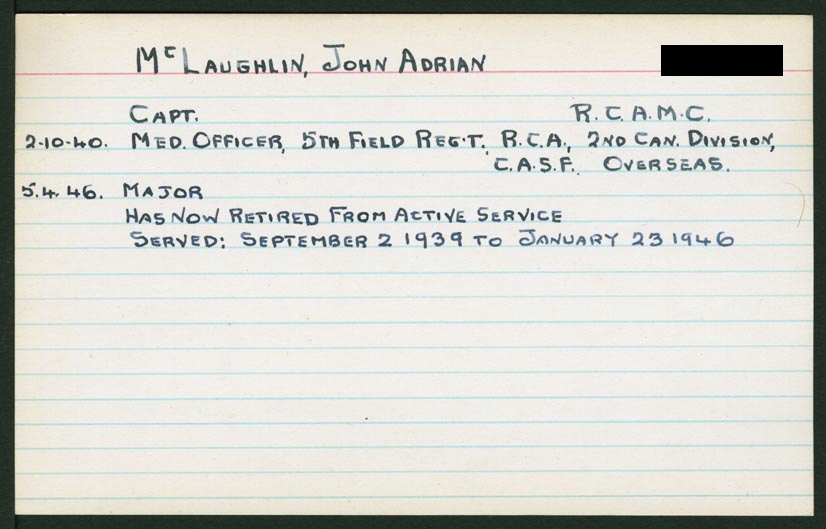 McLaughlin, John Adrian
Capt. R.C.A.M.C.
2-10-40. Med. Officer, 5th Field Reg't. R.C.A., 2nd Can. Division,
C.A.S.F. Overseas.
5.4.46. Major
Has Now Retired From Active Service
Served: September 2 1939 to January 23 1946